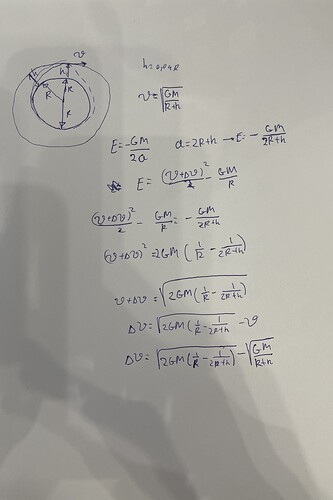 v
h
h
R
R
h=0,02R
v=√(GM/(R+h))
E=-GM/2a a=2R+h → E=-GM/(2R+h)
E=(v+Δv)²/2 - GM/R
(v+Δv)²/2 - GM/R = -GM/(2R+h)
(v+Δv)²=2GM(1/R - 1/(2R+h))
v+Δv=√(2GM(1/R - 1/(2R+h)))
Δv=√(2GM(1/R - 1/(2R+h))) - v
Δv=√(2GM(1/R - 1/(2R+h))) - √(GM/(R+h))